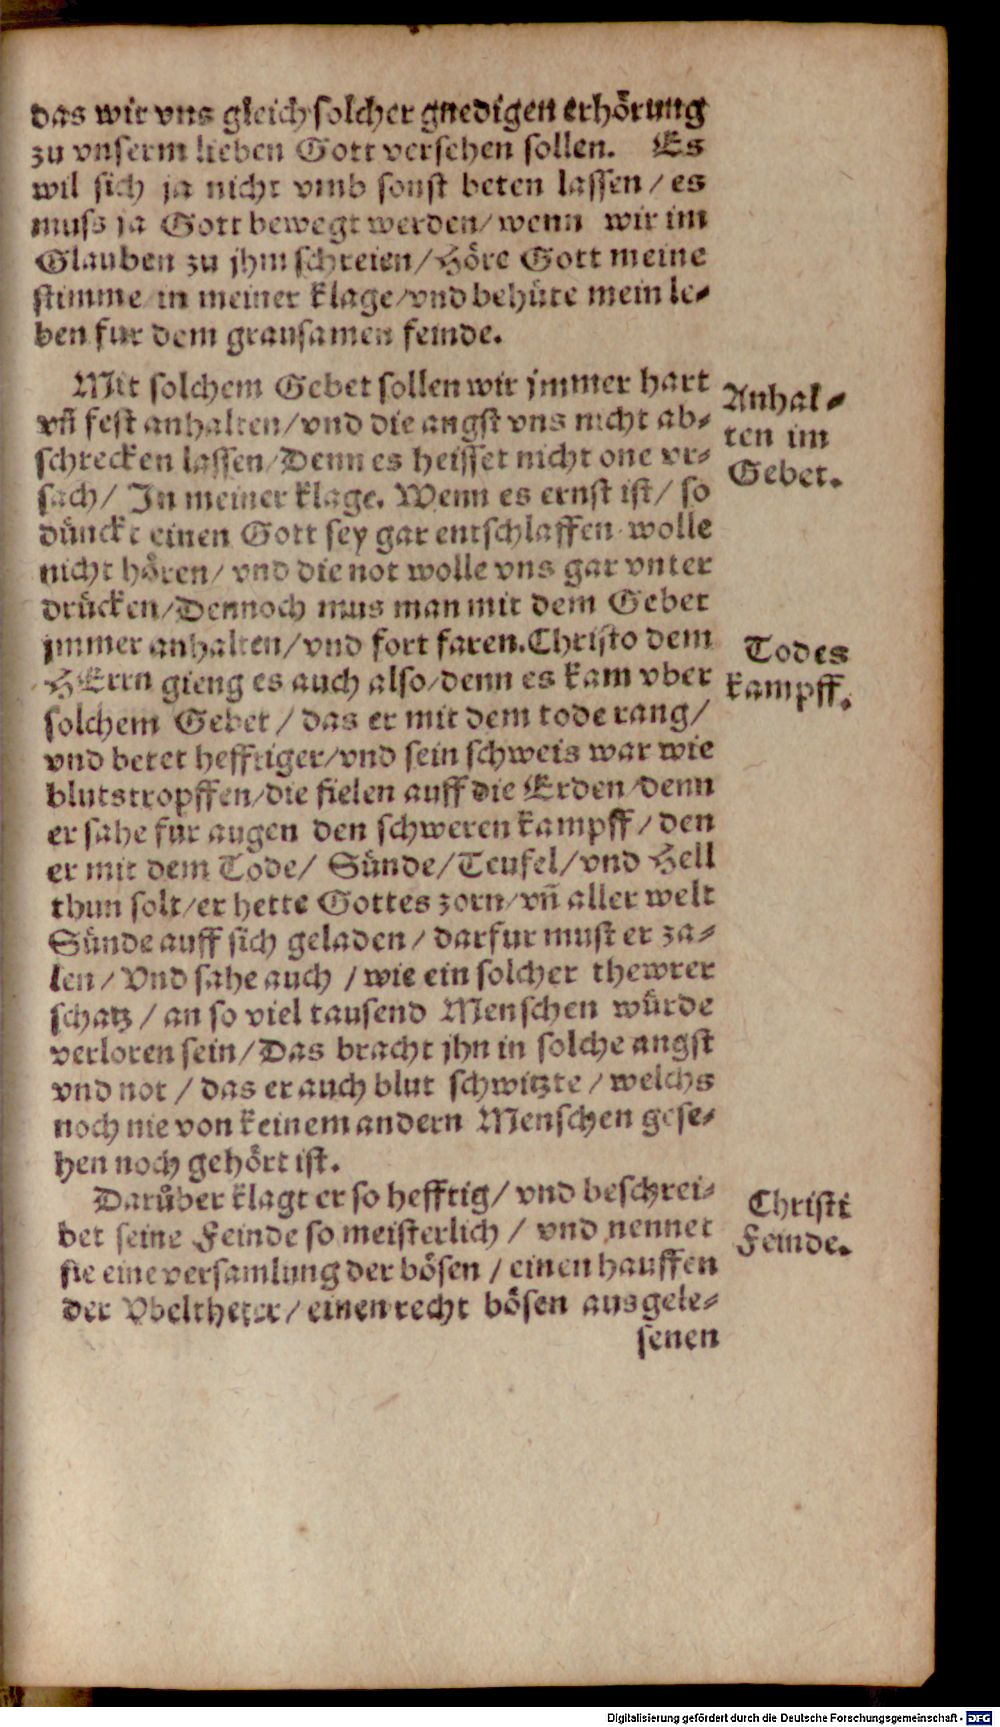 das wir vns gleich solcher gnedigen erhörung
zu vnserm lieben Gott versehen sollen. Es
wil sich ja nicht vmb sonst beten lassen / es
muss ja Gott bewegt werden / wenn wir im
Glauben zu jhm schreien / Höre Gott meine
stimme in meiner klage / vnd behüte mein le⸗
ben fur dem grausamen feinde.
Mit solchem Gebet sollen wir jmmer hart
vñ fest anhalten / vnd die angst vns nicht ab⸗
schrecken lassen / Denn es heisset nicht one vr⸗
sach / In meiner klage. Wenn es ernst ist / so
dünckt einen Gott sey gar entschlaffen wolle
nicht hören / vnd die not wolle vns gar vnter
drücken / Dennoch mus man mit dem Gebet
jmmer anhalten / vnd fort faren. Christo dem
HErrn gieng es auch also / denn es kam vber
solchem Gebet / das er mit dem tode rang /
vnd betet hefftiger / vnd sein schweis war wie
blutstropffen / die fielen auff die Erden / denn
er sahe fur augen den schweren kampff / den
er mit dem Tode / Sünde / Teufel / vnd Hell
thun solt / er hette Gottes zorn / vñ aller welt
Sünde auff sich geladen / darfur must er za⸗
len / Vnd sahe auch / wie ein solcher thewrer
schatz / an so viel tausend Menschen würde
verloren sein / Das bracht jhn in solche angst
vnd not / das er auch blut schwitzte / welchs
noch nie von keinem andern Menschen gese⸗
hen noch gehört ist.
Darüber klagt er so hefftig / vnd beschrei⸗
bet seine Feinde so meisterlich / vnd nennet
sie eine versamlung der bösen / einen hauffen
der Vbeltheter / einen recht bösen ausgele⸗
senen
Anhal⸗
ten im
Gebet.
Todes
kampff.
Christi
Feinde.
Digitalisierung gefördert durch die Deutsche Forschungsgemeinschaft - DFG